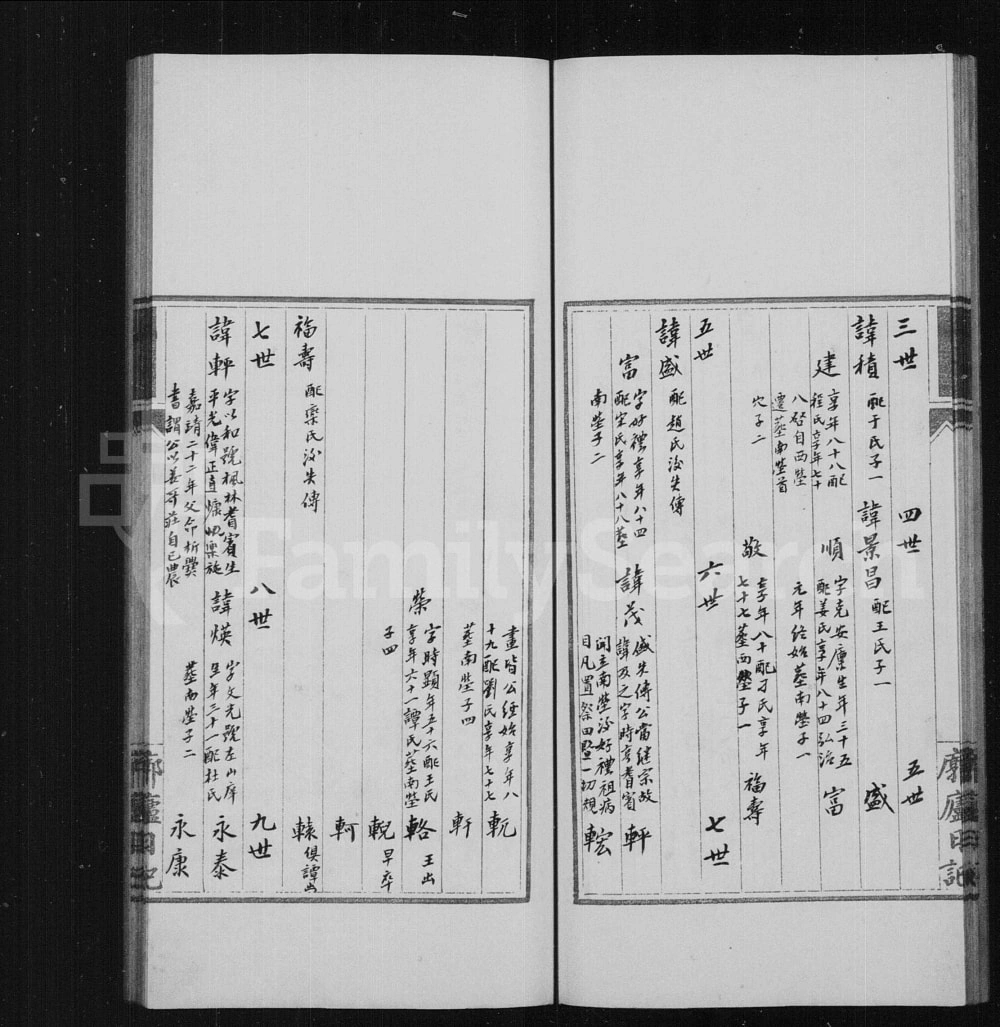 三世 四世 五世
諱積 配于氏子一 諱景昌 配王氏子一 盛
建 享年八十八配
程氏享年七十
八啓自西塋
遷墓南塋首
穴子二
順 字克安廪生年三十五
配姜氏享年八十四弘治
元年经始墓南塋子一
富
敬 享年八十配刁氏享年
七十七墓西塋子一
福壽
五世 六世 七世
諱盛 配趙氏後失傳
富 字好禮享年八十四
配宋氏享年八十八墓
南塋子二
諱茂 盛失傳公當继宗故
諱及之字時享耆賓
闻立南塋後好禮祖病
目凡置祭田暨一切规
軯
鋐
畫皆公经始享年八
十九配劉氏享年七十七
墓南塋子四
軏
軒
榮 字時顯年五十六配王氏
享年六十一譚氏墓南塋
子四
輅 王出
輗 早卒
軻
轅 俱譚出
福壽 配栾氏後失傳
七世 八世 九世
諱軯 字以和號楓林耆賓生
平光偉正直慷慨樂施
嘉靖二十二年父命析爨
書謂公以姜哥莊自已農
諱煐 字文光號左山庠
生年三十一配杜氏
墓南塋子二
永泰
永康
廬日記
FamilySearch